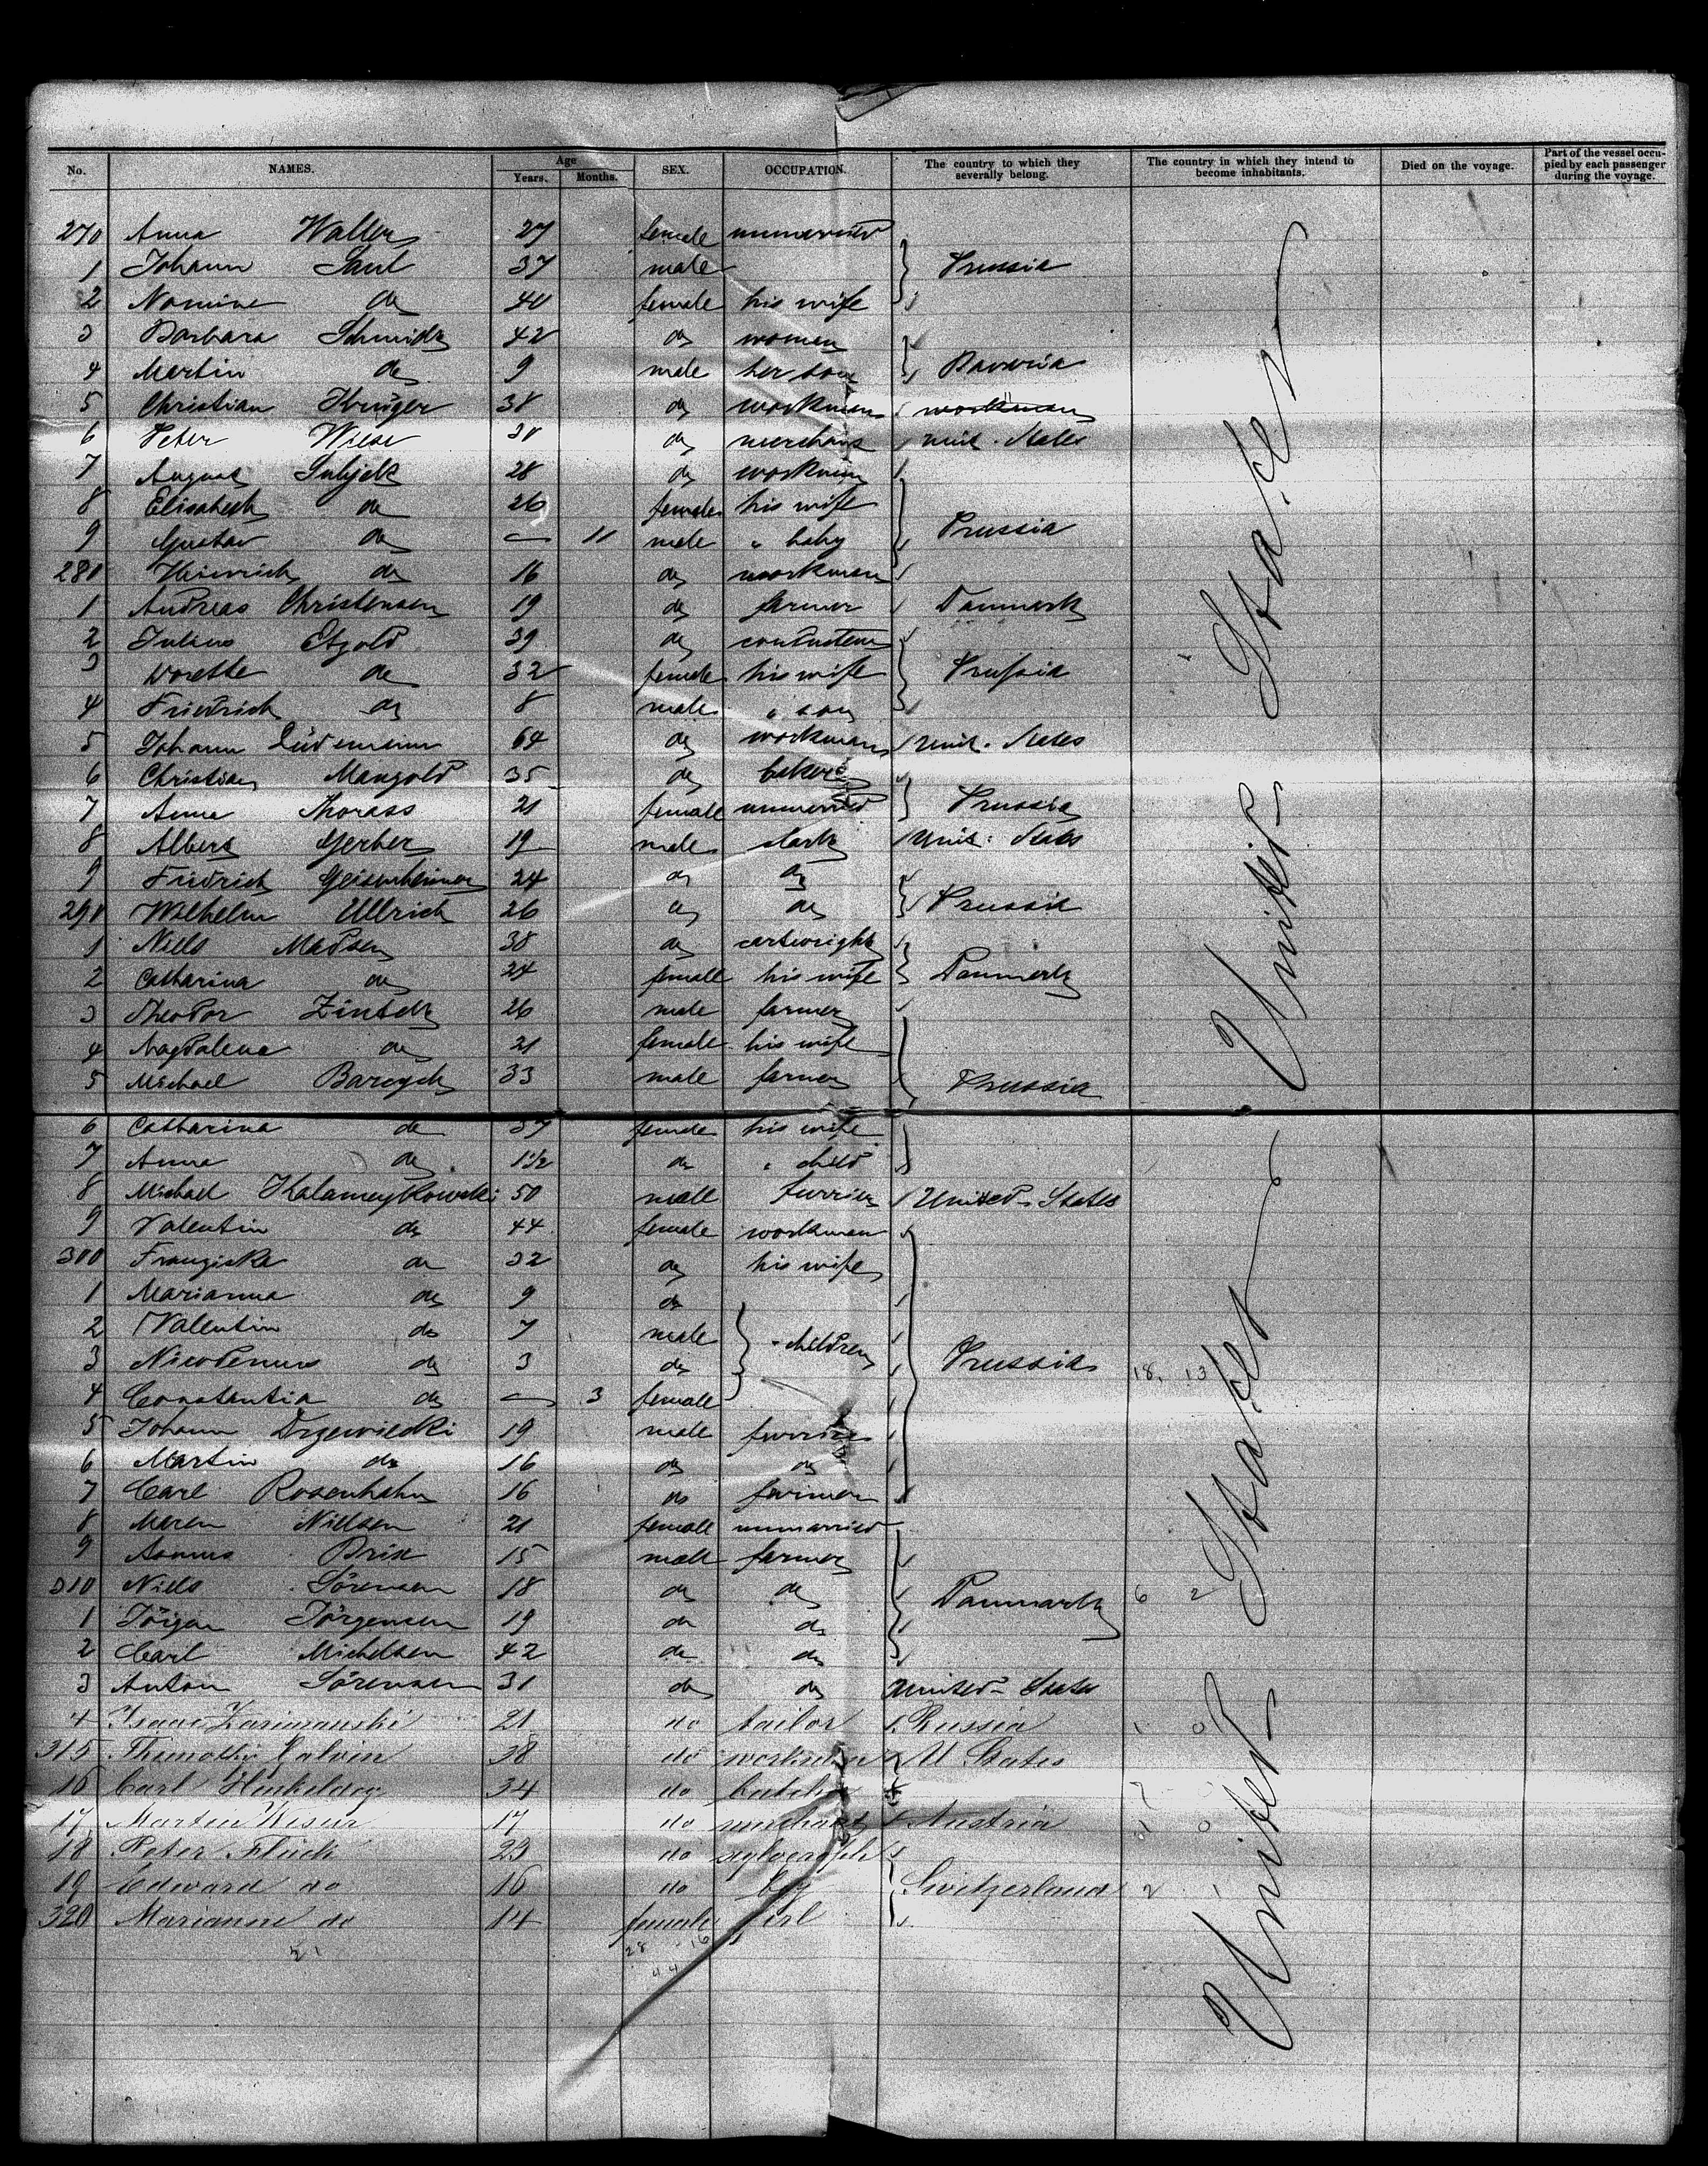 No. NAMES. Age Years. Months. SEX. OCCUPATION. The country to which they severally belong. The country in which they intend to become inhabitants. Died on the voyage. Part of the vessel occupied by each passenger during the voyage.
270 Anna Waller 27 female unmarried
1 Johann Saul 37 male Prussia
2 do 40 female his wife
3 Barbara Schmidt 42 do women
4 Martin do 9 male her son Bavaria
5 Christian Krüger 38 do workman workman
6 Peter Wiese 30 do merchant unit. States
7 August 28 do workman
8 Elisabeth do 26 female his wife
9 Gustav do — 11 male " baby Prussia
280 Heinrich do 16 do workman
1 Andreas Christensen 19 do farmer Danmark
2 Julius Etzold 39 do
3 Dorette do 32 female his wife Prussia
4 Friedrich do 8 male " son
5 Johann Lüdemann 64 do workman Unit. States
6 Christian Mangold 35 do baker
7 Anna 21 female unmarried Prussia
8 Albert Gerber 19 male clark Unit: States
9 Fridrich Geisenheimer 24 do do
290 Wilhelm Ullrich 26 do do Prussia
1 Niels Madsen 38 do cartwright
2 Catharina do 24 female his wife Danmark
3 Theodor 26 male farmer
4 Magdalena do 21 female his wife
5 Michael 33 male farmer Prussia
6 Catharina do 37 female his wife
7 Anna do 1 1/2 do " child
8 Michael 50 male furrier United States
9 Valentin do 44 female workman
300 Franziska do 32 do his wife
1 Marianna do 9 do
2 Valentin do 7 male " children
3 Nicodemus do 3 do Prussia 18. 13
4 Constantia do — 3 female
5 Johann Drzewiecki 19 male furrier
6 Martin do 16 do do
7 Carl Rosenhahn 16 do farmer
8 Maren Nielsen 21 female unmarried
9 Asmus Brix 15 male farmer
310 Niels Sörensen 18 do do Danmark 6 2
1 Jörgen Jörgensen 19 do do
2 Carl Michelsen 42 do do
3 Anton Sörensen 31 do do United States
4 Isaac 21 do tailor Russia 1 0
315 Thimothy Calvin 38 do workman U States
16 Carl Hinkeldey 34 do butcher
17 Martin Wiesur 17 do merchant Austria 0
18 Peter Flück 23 do xylograph
19 Edward do 16 do boy Switzerland 2 1
320 Marianne do 14 female girl
21 28 16
44
United States
United States